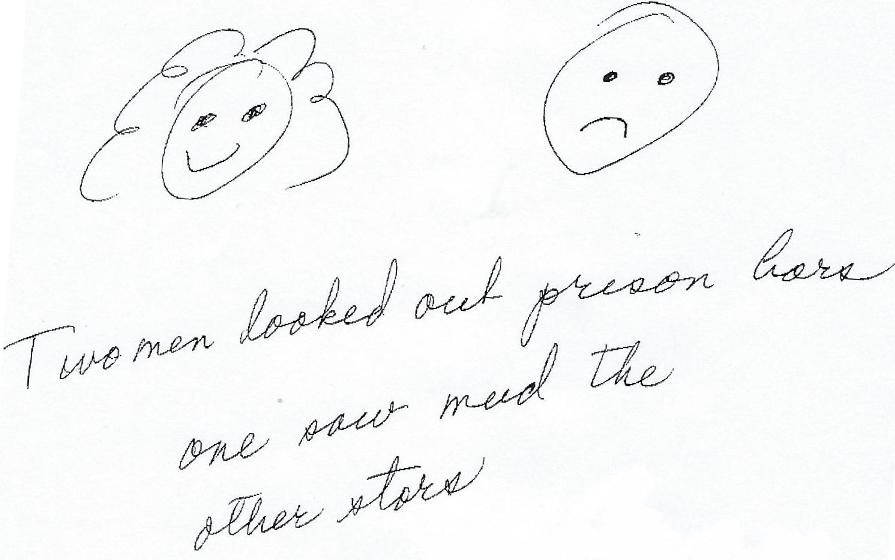 Two men looked out prison bars
one saw mud the
other stars